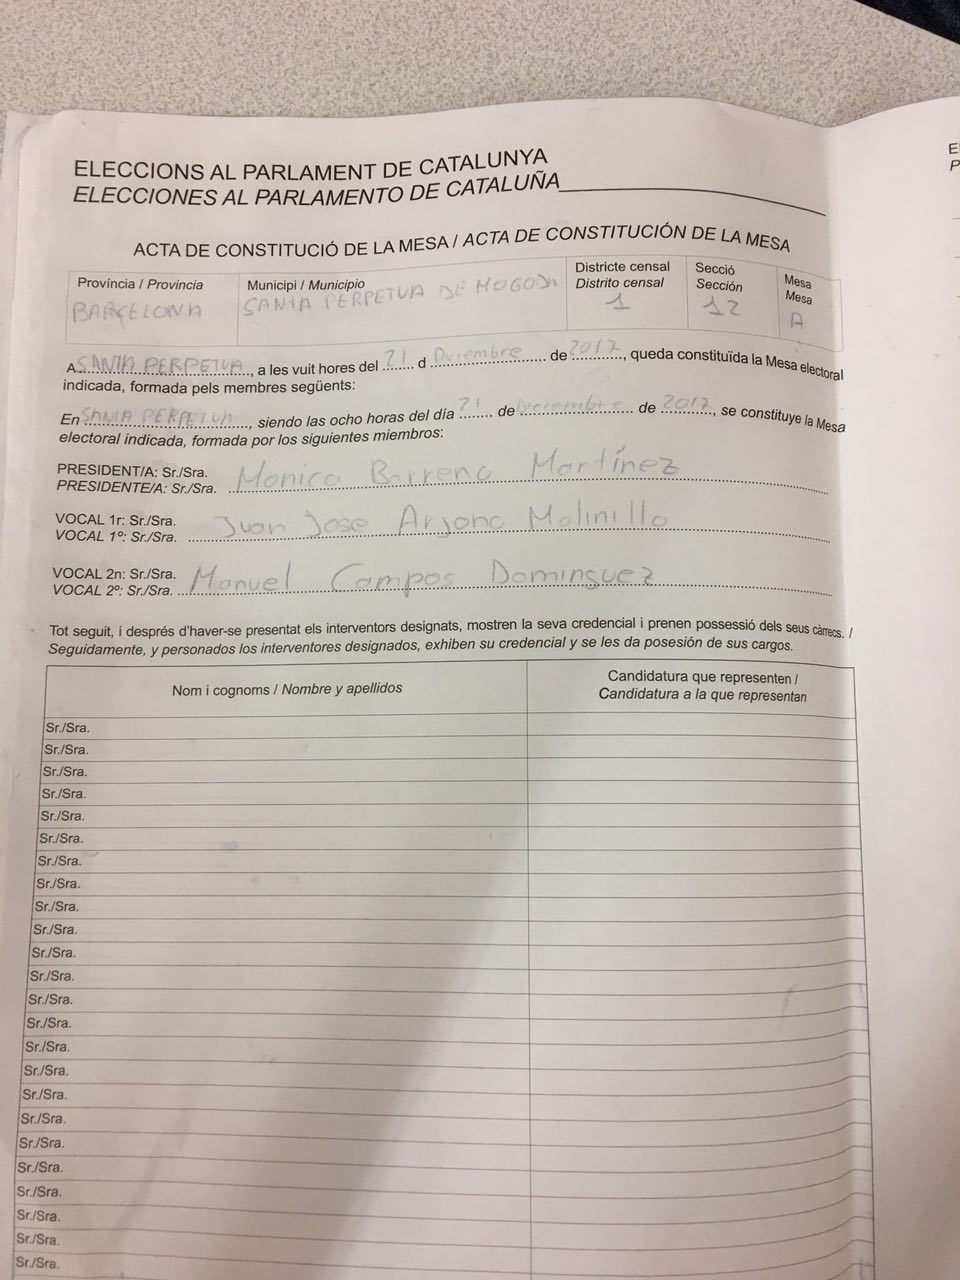 ELECCIONS AL PARLAMENT DE CATALUNYA
ELECCIONES AL PARLAMENTO DE CATALUÑA
ACTA DE CONSTITUCIÓ DE LA MESA / ACTA DE CONSTITUCIÓN DE LA MESA
Província / Provincia
BARCELONA
Municipi / Municipio
SANTA PERPETUA DE MOGODA
Districte censal
Distrito censal
1
Secció
Sección
12
Mesa
Mesa
A
A SANTA PERPETUA, a les vuit hores del 21 d Diciembre de 2017, queda constituïda la Mesa electoral
indicada, formada pels membres següents:
En SANTA PERPETUA, siendo las ocho horas del día 21 de Diciembre de 2017, se constituye la Mesa
electoral indicada, formada por los siguientes miembros:
PRESIDENT/A: Sr./Sra.
PRESIDENTE/A: Sr./Sra. Monica Barrena Martínez
VOCAL 1r: Sr./Sra.
VOCAL 1º: Sr./Sra. Juan Jose Arjona Molinillo
VOCAL 2n: Sr./Sra.
VOCAL 2º: Sr./Sra. Manuel Campos Dominguez
Tot seguit, i després d'haver-se presentat els interventors designats, mostren la seva credencial i prenen possessió dels seus càrrecs. /
Seguidamente, y personados los interventores designados, exhiben su credencial y se les da posesión de sus cargos.
Nom i cognoms / Nombre y apellidos
Candidatura que representen /
Candidatura a la que representan
Sr./Sra.
Sr./Sra.
Sr./Sra.
Sr./Sra.
Sr./Sra.
Sr./Sra.
Sr./Sra.
Sr./Sra.
Sr./Sra.
Sr./Sra.
Sr./Sra.
Sr./Sra.
Sr./Sra.
Sr./Sra.
Sr./Sra.
Sr./Sra.
Sr./Sra.
Sr./Sra.
Sr./Sra.
Sr./Sra.
Sr./Sra.
Sr./Sra.
Sr./Sra.
Sr./Sra.